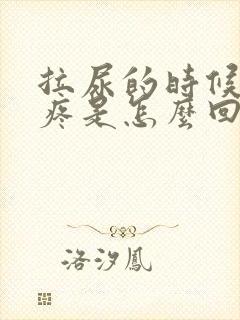 拉尿的時候
疼是怎麼回
洛汐鳳